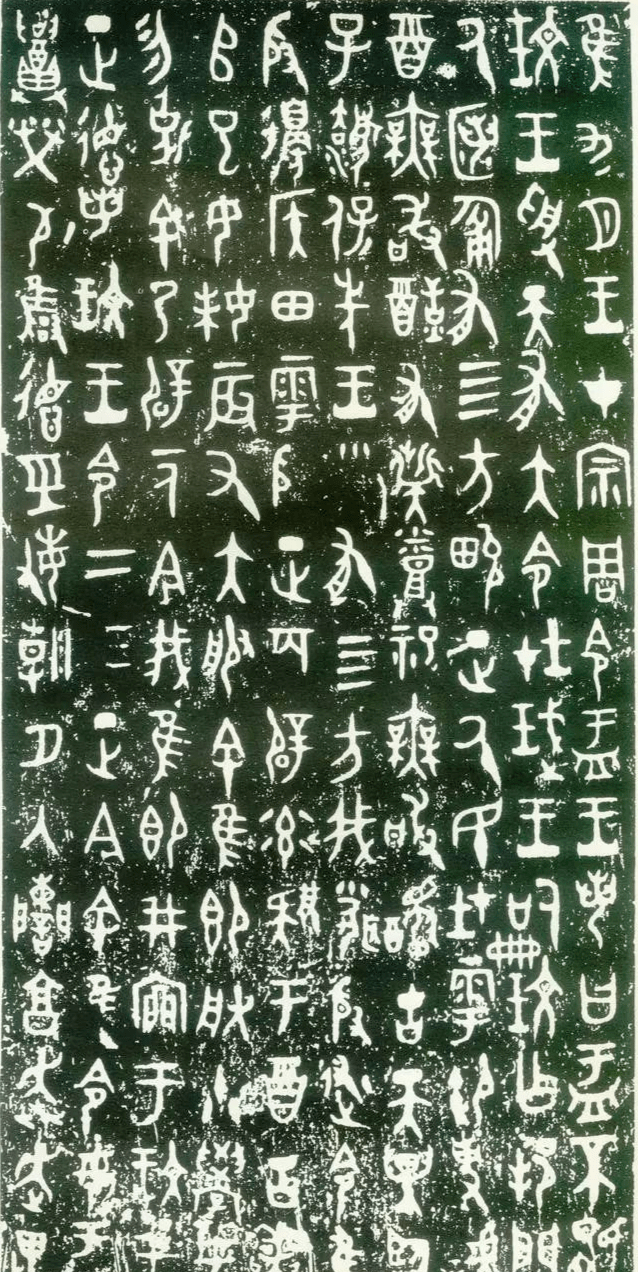 隹九月王才宗周令盂王若曰盂不顯
玟王受天有大令在珷王嗣玟乍邦闢
厥匿匍有四方畯正厥民在雩御事
酉無敢酖有祀無敢古天異臨
子灋保先王有四方我聞殷述令隹
殷邊侯田雩殷正百辟率肄于酉古喪
𠂤已女妹辰又大服余隹即朕小學女
勿克余乃辟一人今我隹即井廩于玟王
正德若玟王令二三正今余隹令女盂
召榮敬雍德巠敏朝夕入讕享奔走畏